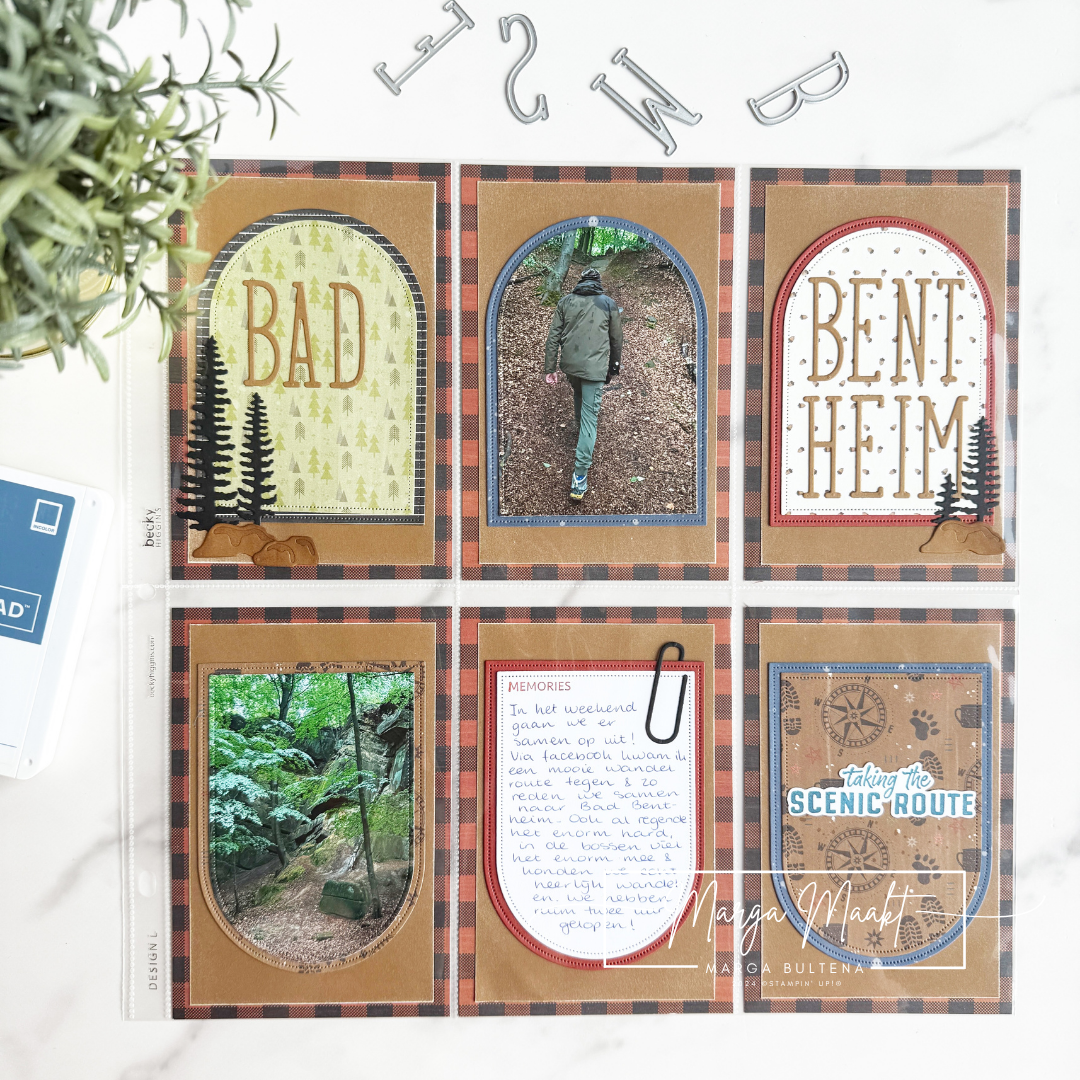 T S W B
BAD
BENT
HEIM
becky
HIGGINS
beckyhiggins.com
DESIGN L
INCOLOR
AD™
MEMORIES
In het weekend
gaan we er
samen op uit!
Via facebook kwam ik
een mooie wandel
route tegen & zo
reden we samen
naar Bad Bent-
heim. Ook al regende
het enorm hard,
in de bossen viel
het enorm mee &
konden we echt
heerlijk wandel
en. We hebben
ruim twee uur
gelopen!
taking the
SCENIC ROUTE
Marga Maakt
MARGA BULTENA
24 ©STAMPIN' UP!®